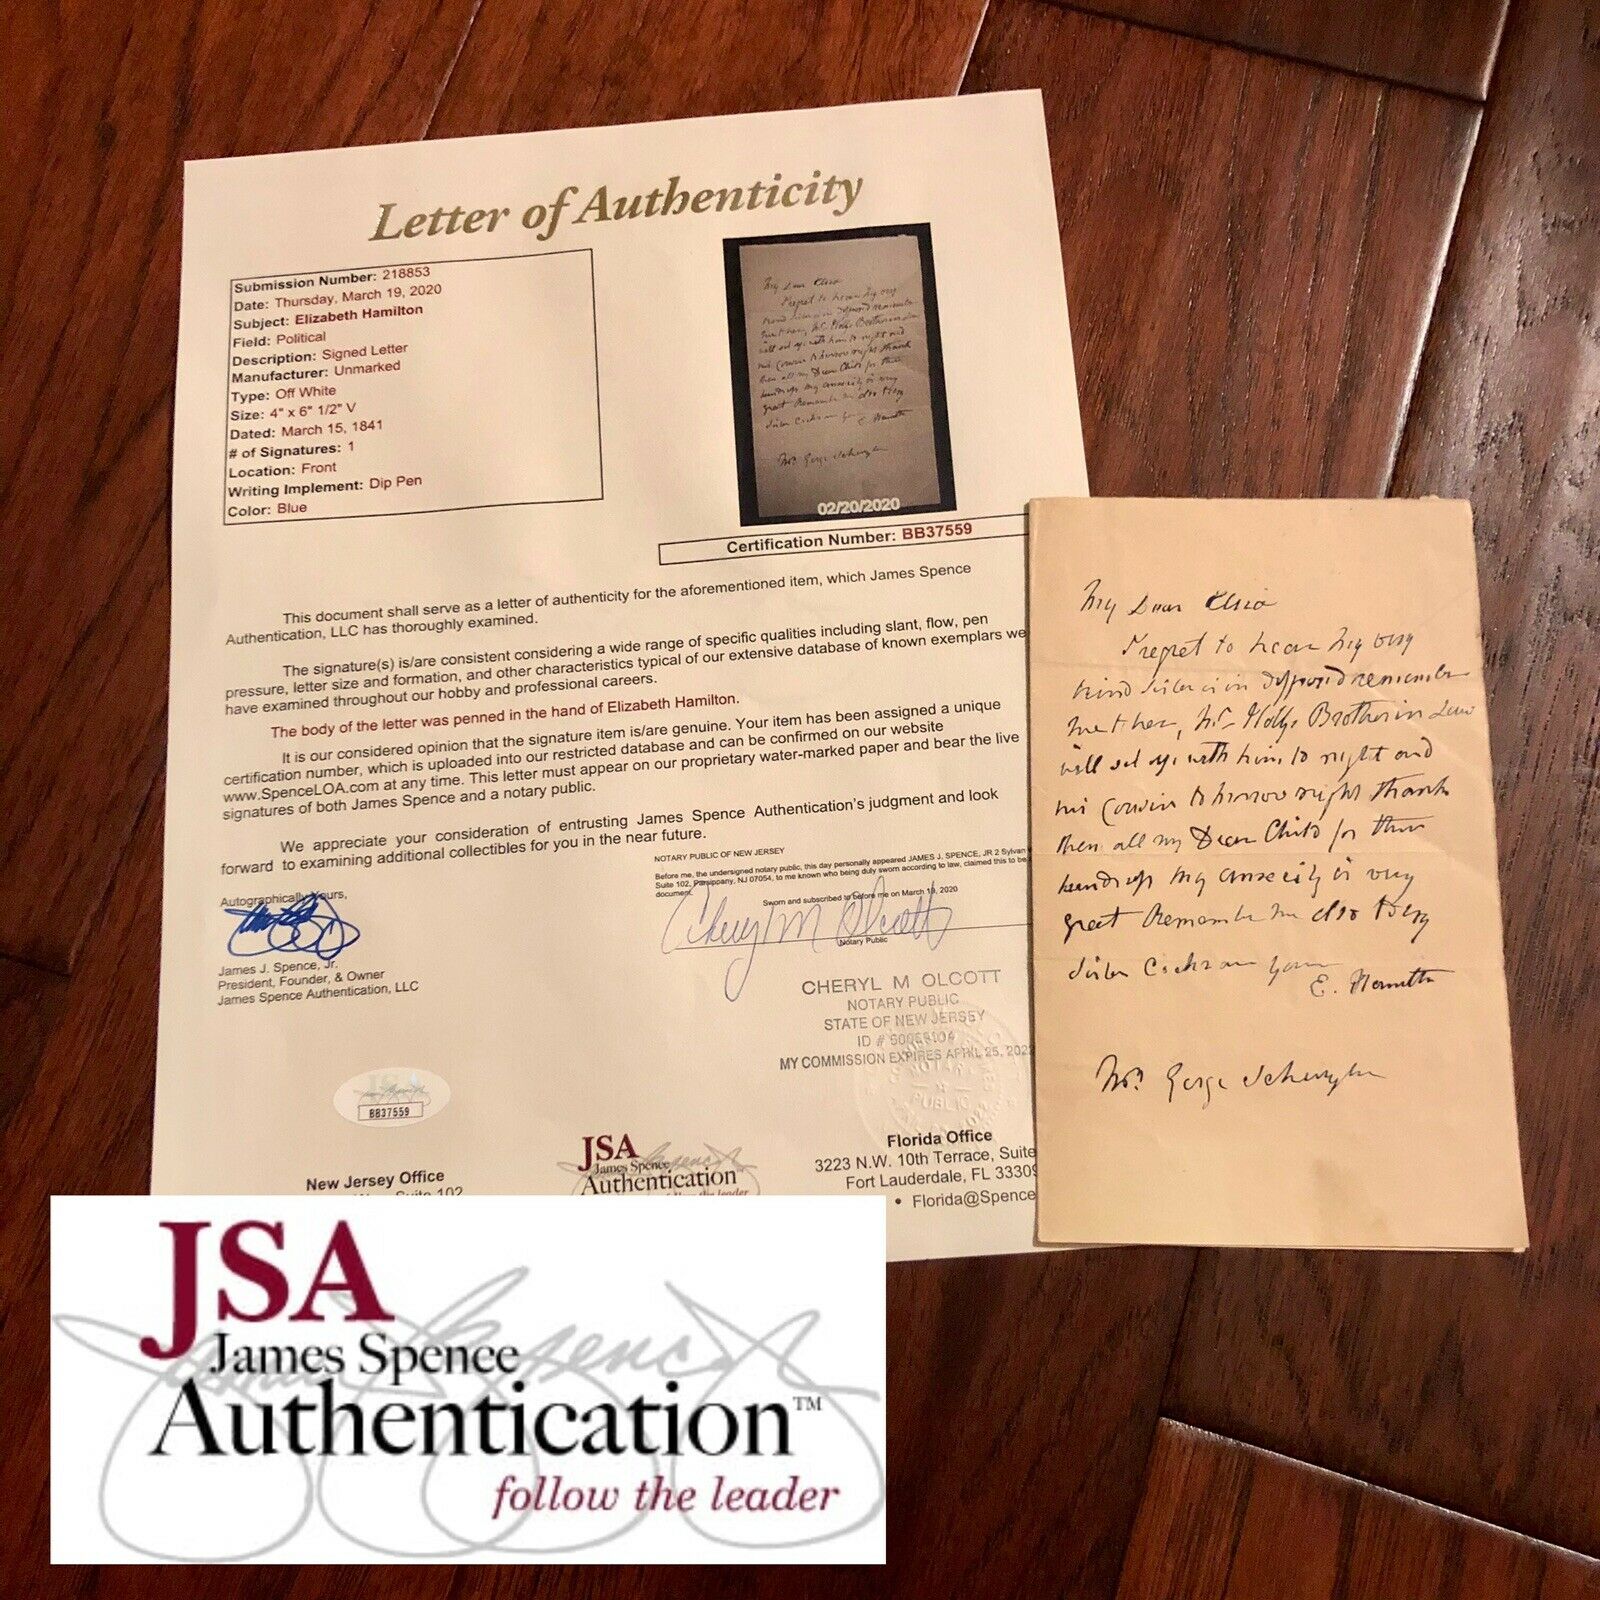 Letter of Authenticity
Submission Number: 218853
Date: Thursday, March 19, 2020
Subject: Elizabeth Hamilton
Field: Political
Description: Signed Letter
Manufacturer: Unmarked
Type: Off White
Size: 4" x 6" 1/2" V
Dated: March 15, 1841
# of Signatures: 1
Location: Front
Writing Implement: Dip Pen
Color: Blue
02/20/2020
Certification Number: BB37559
This document shall serve as a letter of authenticity for the aforementioned item, which James Spence
Authentication, LLC has thoroughly examined.
The signature(s) is/are consistent considering a wide range of specific qualities including slant, flow, pen
pressure, letter size and formation, and other characteristics typical of our extensive database of known exemplars we
have examined throughout our hobby and professional careers.
The body of the letter was penned in the hand of Elizabeth Hamilton.
It is our considered opinion that the signature item is/are genuine. Your item has been assigned a unique
certification number, which is uploaded into our restricted database and can be confirmed on our website
www.SpenceLOA.com at any time. This letter must appear on our proprietary water-marked paper and bear the live
signatures of both James Spence and a notary public.
We appreciate your consideration of entrusting James Spence Authentication's judgment and look
forward to examining additional collectibles for you in the near future.
NOTARY PUBLIC OF NEW JERSEY
Before me, the undersigned notary public, this day personally appeared JAMES J. SPENCE, JR 2 Sylvan
Suite 102, Parsippany, NJ 07054, to me known who being duly sworn according to law, claimed this to be
document.
Sworn and subscribed to before me on March 19, 2020
Autographically Yours,
Cheryl M Olcott
Notary Public
James J. Spence, Jr.
President, Founder, & Owner
James Spence Authentication, LLC
CHERYL M OLCOTT
NOTARY PUBLIC
STATE OF NEW JERSEY
ID #
MY COMMISSION EXPIRES APRIL 25, 202
BB37559
New Jersey Office
Suite 102
JSA
James Spence
Authentication
follow the leader
Florida Office
3223 N.W. 10th Terrace, Suite
Fort Lauderdale, FL 33309
• Florida@Spence
My Dear
I regret to hear my very
kind sister is remember
me to her, Mr Brother in Law
will set up with him to night and
my Cousin to morrow night thank
them all my Dear Child for their
kindness my anxiety is very
great Remember me also to my
sister Cochran your
E. Hamilton
Mrs George Schuyler
JSA
James Spence
Authentication™
follow the leader